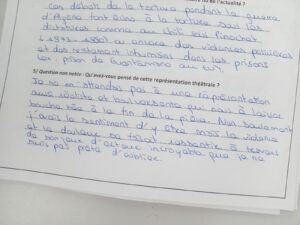 de l'actualité ?
cas débats de la torture pendant la guerre
d'Algérie font écho à la torture sous les
dictatures comme au Chili sous Pinochet
1973-1990 ou encore des violences policières
et des traitement inhumains dans les prisons
(ex: prison de Guantanamo au
5) Question non notée : Qu'avez-vous pensé de cette représentation théâtrale ?
Je ne m'attendais pas à une représentation
aussi réaliste et boulversante qui nous à laissé
bouche bée à la fin de la pièce. Non seulement
j'avais le sentiment d'y être mais la violence
et la douleur se fesait ressentir à travers
de bonjeux d'acteur incroyable que je ne
suis pas prête d'oublier.